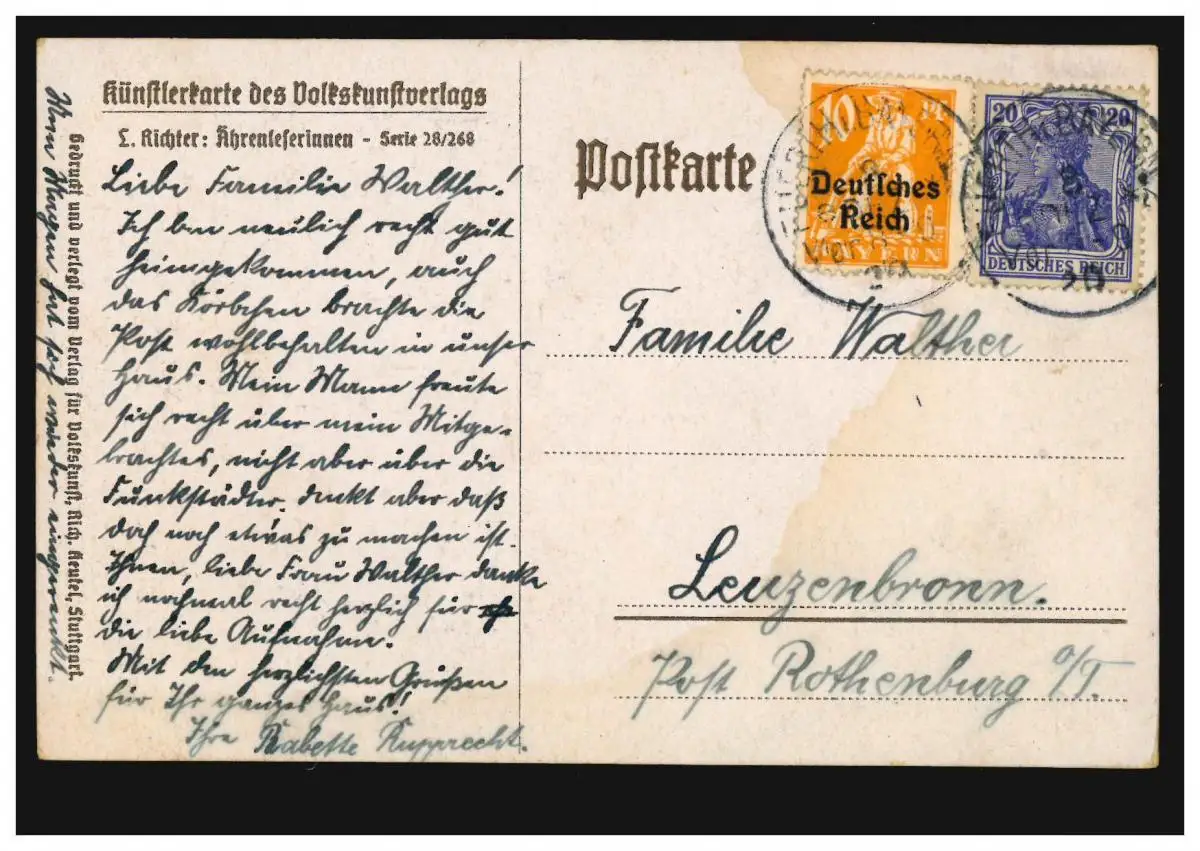 Künstlerkarte des Volkskunstverlags
L. Richter: Ährenleserinnen - Serie 28/268
Liebe Familie Walther!
Ich bin neulich recht gut
heimgekommen, auch
das Körbchen brachte die
Post wohlbehalten in unser
Haus. Mein Mann freute
sich recht über mein Mitge-
brachtes, nicht aber über die
Funkstädter. denkt aber daß
doch noch etwas zu machen ist.
Ihnen, liebe Frau Walther danke
ich nochmal recht herzlich für
die liebe Aufnahme.
Mit den herzlichsten Grüßen
für Ihr ganzes Haus!
Ihre Babette Rupprecht.
hat sich wieder eingerenkt.
Gedruckt und verlegt vom Verlag für Volkskunst, Rich. Keutel, Stuttgart.
Postkarte
10 Pf
Deutsches
Reich
BAYERN
20 20
DEUTSCHES REICH
Familie Walther
Leuzenbronn.
Post Rothenburg o/T.